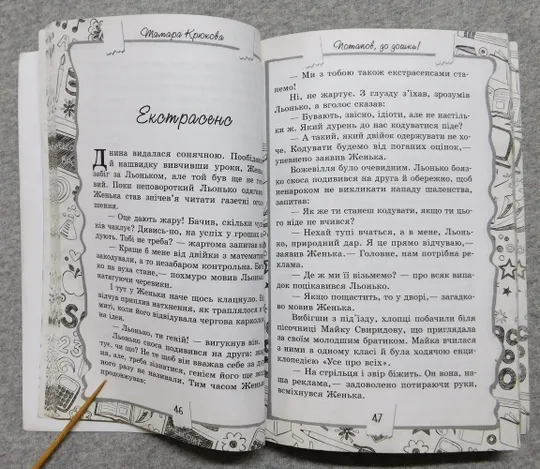 Тамара Крюкова
Екстрасенс
Днина видалася сонячною. Пообідавши
й нашвидку вивчивши уроки, Женька
забіг за Льоньком, але той був ще не го-
вий. Поки неповороткий Льонько одягався,
Женька став знічев'я читати газетні оголо-
шення.
— Оце дають жару! Бачив, скільки чудо-
чаклує? Дивись-но, на успіх у грошах ко-
дують. Тобі не треба? — жартома запитав він.
— Краще б мене від двійки з математики
закодували, а то незабаром контрольна. Банан
на вуха стане,— похмуро мовив Льонько,
натягуючи черевики.
І тут у Женьки наче щось клацнуло. На
відчув приплив натхнення, як траплялося в
миті, коли його відвідувала чергова карколомна
ідея.
— Льонько, ти геній! — вигукнув він.
Льонько скоса подивився на друга: жар-
тує, чи що? Не те щоб він вважав себе за дур-
ня, але, треба зізнатися, генієм його ще жод-
ного разу не називали. Тим часом Женька
продовжував:
46
Потапов, до дошки!
— Ми з тобою також екстрасенсами ста-
немо!
Ні, не жартує. З глузду з'їхав, зрозумів
Льонько, а вголос сказав:
— Бувають, звісно, ідіоти, але не настіль-
ки ж. Який дурень до нас кодуватися піде?
— А такий, який двійок одержувати не хо-
че. Кодувати будемо від поганих оцінок,—
упевнено заявив Женька.
Божевілля було очевидним. Льонько бояз-
ко скоса подивився на друга й обережно, щоб
ненароком не викликати нападу шаленства,
запитав:
— Як же ти станеш кодувати, якщо ти цьо-
го ніде не вчився?
— Нехай тупі вчаться, а в мене, Льонь-
ко, природний дар. Я це прямо відчуваю,—
заявив Женька.— Головне, нам потрібна ре-
клама.
— Де ж ми її візьмемо? — про всяк випа-
док поцікавився Льонько.
— Якщо пощастить, то у дворі,— загадко-
во мовив Женька.
Вибігши з під'їзду, хлопці побачили біля
пісочниці Майку Свиридову, що приглядала
за своїм молодшим братиком. Майка вчилася
з ними в одному класі й була ходячою енци-
клопедією «Усе про всіх».
— На стрільця і звір біжить. Он вона, на-
ша реклама,— задоволено потираючи руки,
всміхнувся Женька.
47